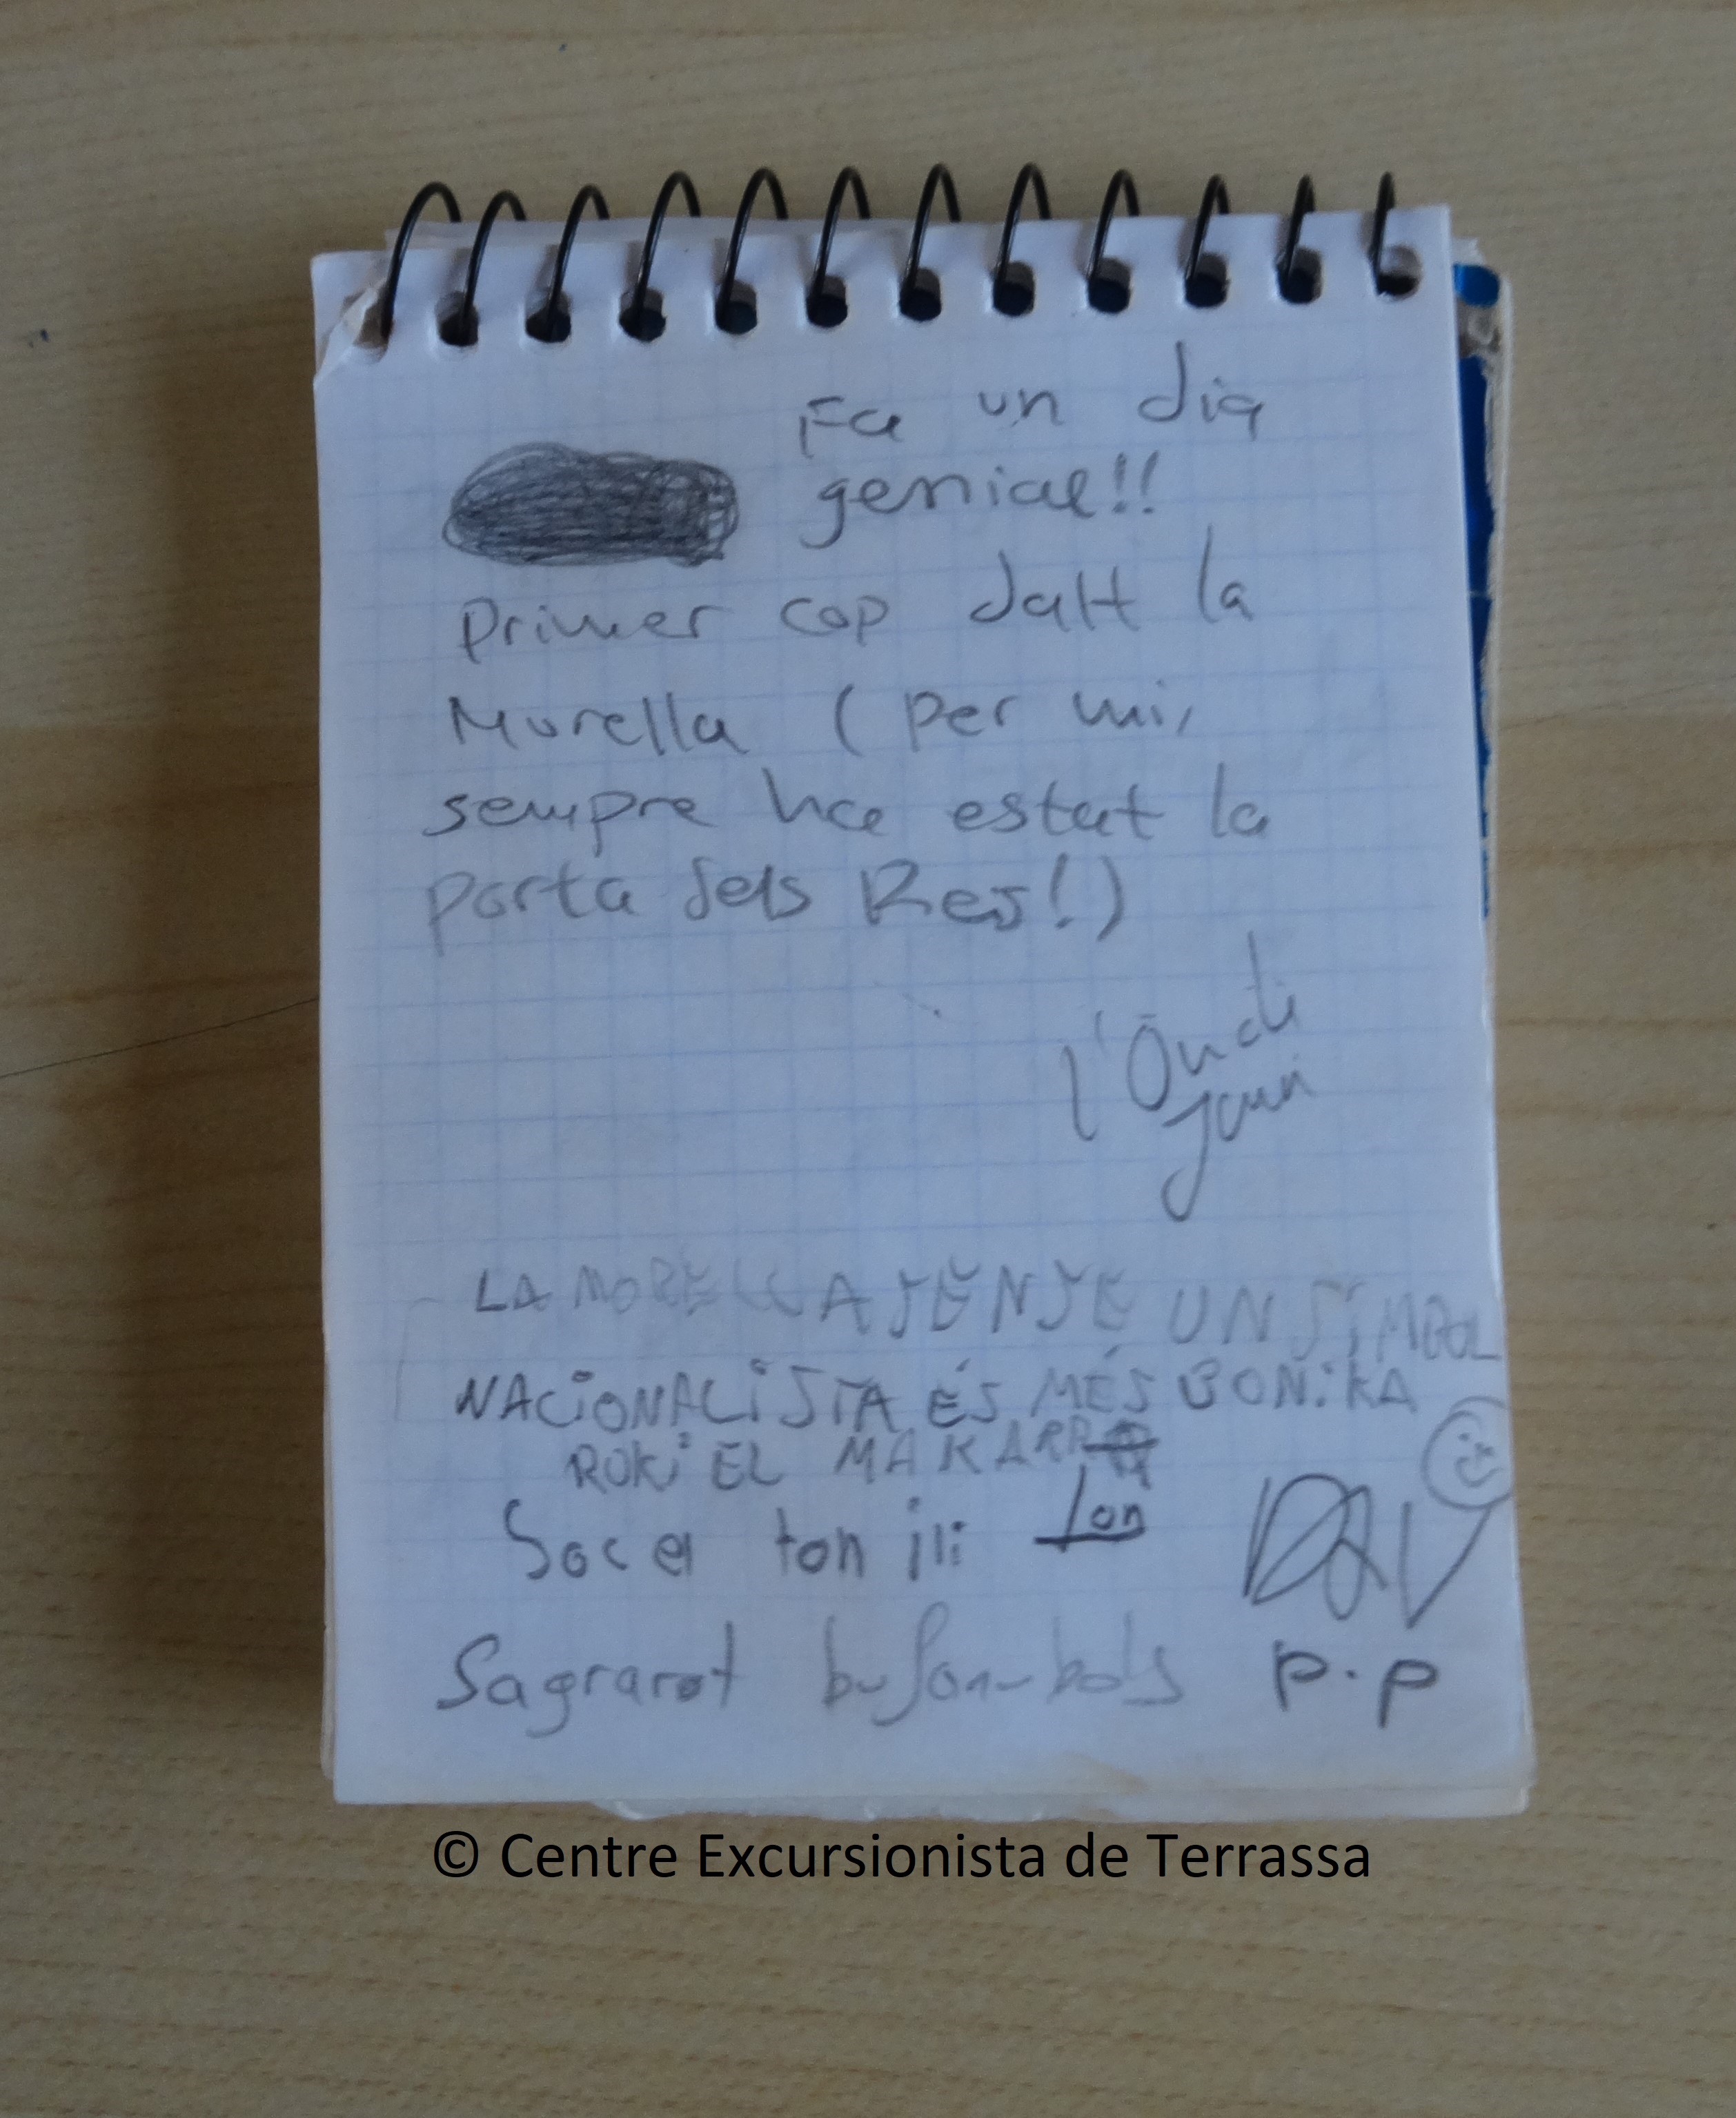 Fa un dia
genial!!
Primer cop dalt la
Morella (per mi,
sempre hce estat la
porta dels Res!)
LA MORELLA SENSE UN SÍMBOL
NACIONALISTA ÉS MÉS BONIKA
ROKI EL MAKARRA
Soc el ton ili
Sagrarot
p.p
© Centre Excursionista de Terrassa